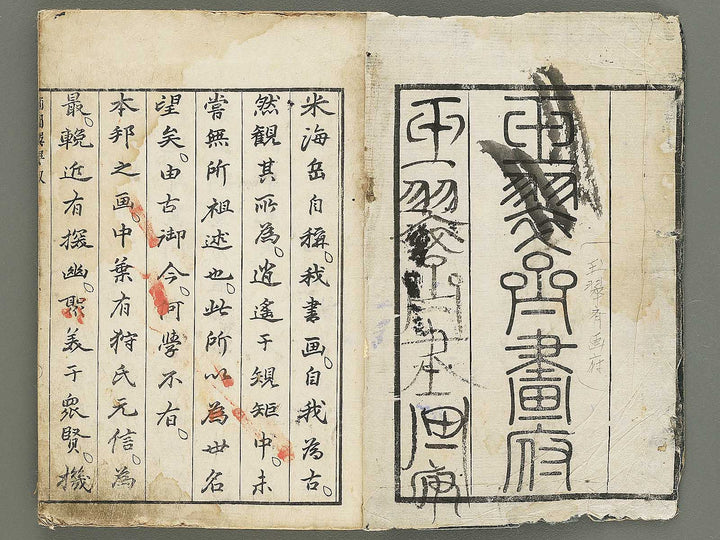 玉翠齊畫府
王翠斉画府
米海岳自稱。我書画。自我為古。
然觀其所為。逍遙于䂓矩中。未
嘗無所祖述也。此所以為世名
望矣。由古御今。何學不有。
本邦之画。中葉有狩氏元信。為
最。輓近有探幽。聚美于衆賢。機